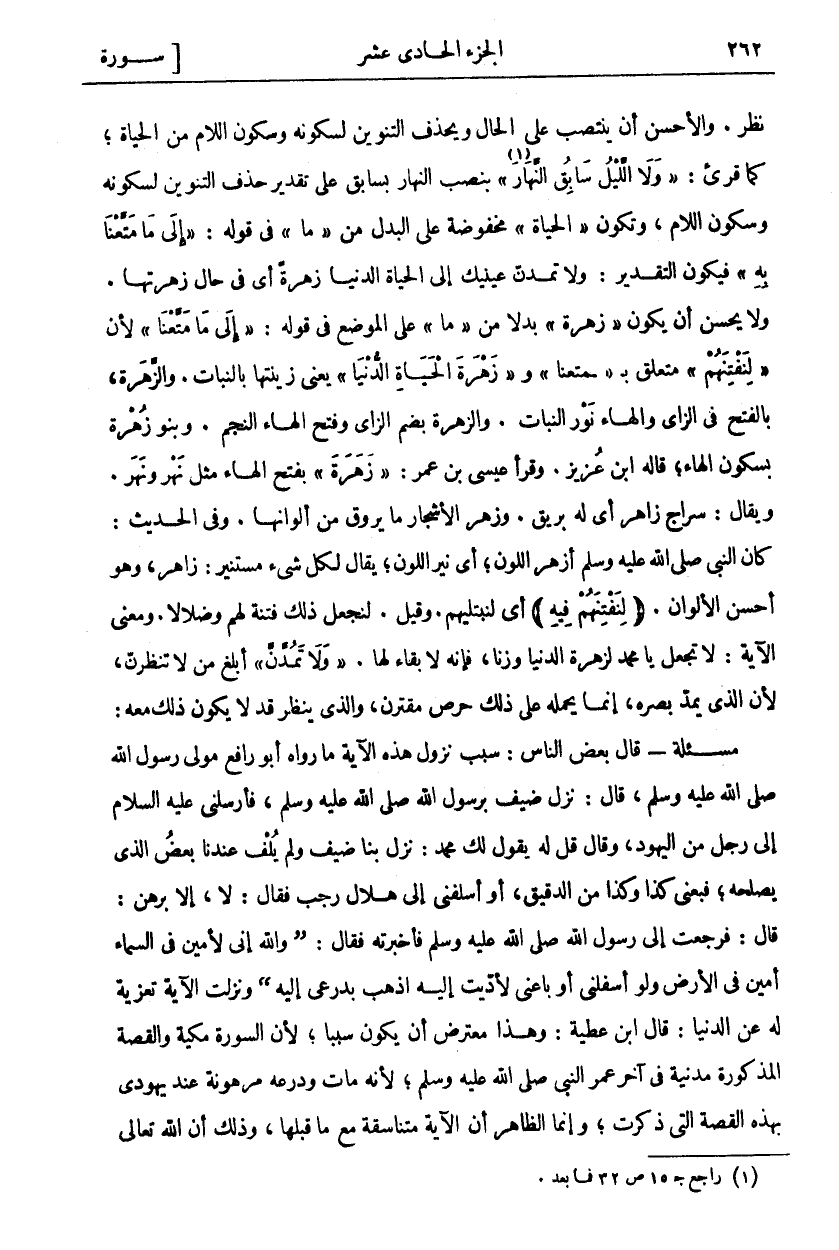 ٢٦٢ الجزء الحادى عشر [ ســورة
نظر . والأحسن أن ينتصب على الحال ويحذف التنوين لسكونه وسكون اللام من الحياة ؛
كما قرئ : « وَلَا اللَّيْلُ سَابِقُ النَّهَارَ (١) » بنصب النهار بسابق على تقدير حذف التنوين لسكونه
وسكون اللام ، وتكون « الحياة » مخفوضة على البدل من « ما » فى قوله : « إِلَى مَا مَتَّعْنَا
بِهِ » فيكون التقدير : ولا تمدنّ عينيك إلى الحياة الدنيــا زهرةً أى فى حال زهرتهـا .
ولا يحسن أن يكون « زهرة » بدلا من « ما » على الموضع فى قوله : « إِلَى مَا مَتَّعْنَا » لأن
« لِنَفْتِنَهُمْ » متعلق بـ « ـمتعنا » و « زَهْرَةَ الْحَيَـاةِ الدُّنْيَا » يعنى زينتها بالنبات . والزَّهَرة،
بالفتح فى الزاى والهـاء نَوْر النبات . والزهرة بضم الزاى وفتح الهـاء النجم . وبنو زُهْرة
بسكون الهاء؛ قاله ابن عُزيز . وقرأ عيسى بن عمر : « زَهَرَةَ » بفتح الهـاء مثل نَهْر ونَهَر .
ويقال : سراج زاهر أى له بريق . وزهر الأشجار ما يروق من ألوانهـا . وفى الحديث :
كان النبى صلى الله عليه وسلم أزهر اللون؛ أى نير اللون؛ يقال لكل شىء مستنير : زاهر، وهو
أحسن الألوان . ﴿ لِنَفْتِنَهُمْ فِيهِ ﴾ أى لنبتليهم . وقيل . لنجعل ذلك فتنة لهم وضلالا . ومعنى
الآية : لا تجعل يا محمد لزهرة الدنيا وزنا، فإنه لا بقاء لها . « وَلَا تَمُدَّنَّ » أبلغ من لا تنظرنّ،
لأن الذى يمدّ بصره، إنمـا يحمله على ذلك حرص مقترن، والذى ينظر قد لا يكون ذلك معه :
مســـئلة — قال بعض الناس : سبب نزول هذه الآية ما رواه أبو رافع مولى رسول الله
صلى الله عليه وسلم ، قال : نزل ضيف برسول الله صلى الله عليه وسلم ، فأرسلنى عليه السلام
إلى رجل من اليهود، وقال قل له يقول لك محمد : نزل بنا ضيف ولم يُلْف عندنا بعضُ الذى
يصلحه؛ فبعنى كذا وكذا من الدقيق، أو أسلفنى إلى هـلال رجب فقال : لا ، إلا برهن :
قال : فرجعت إلى رسول الله صلى الله عليه وسلم فأخبرته فقال : ” والله إنى لأمين فى السماء
أمين فى الأرض ولو أسفلنى أو باعنى لأدّيت إليــه اذهب بدرعى إليه “ ونزلت الآية تعزية
له عن الدنيا : قال ابن عطية : وهــذا معترض أن يكون سببا ؛ لأن السورة مكية والقصة
المذكورة مدنية فى آخر عمر النبى صلى الله عليه وسلم ؛ لأنه مات ودرعه مرهونة عند يهودى
بهذه القصة التى ذكرت ؛ وإنما الظاهر أن الآية متناسقة مع ما قبلها ، وذلك أن الله تعالى
(١) راجع جـ ١٥ ص ٣٢ فــا بعد .